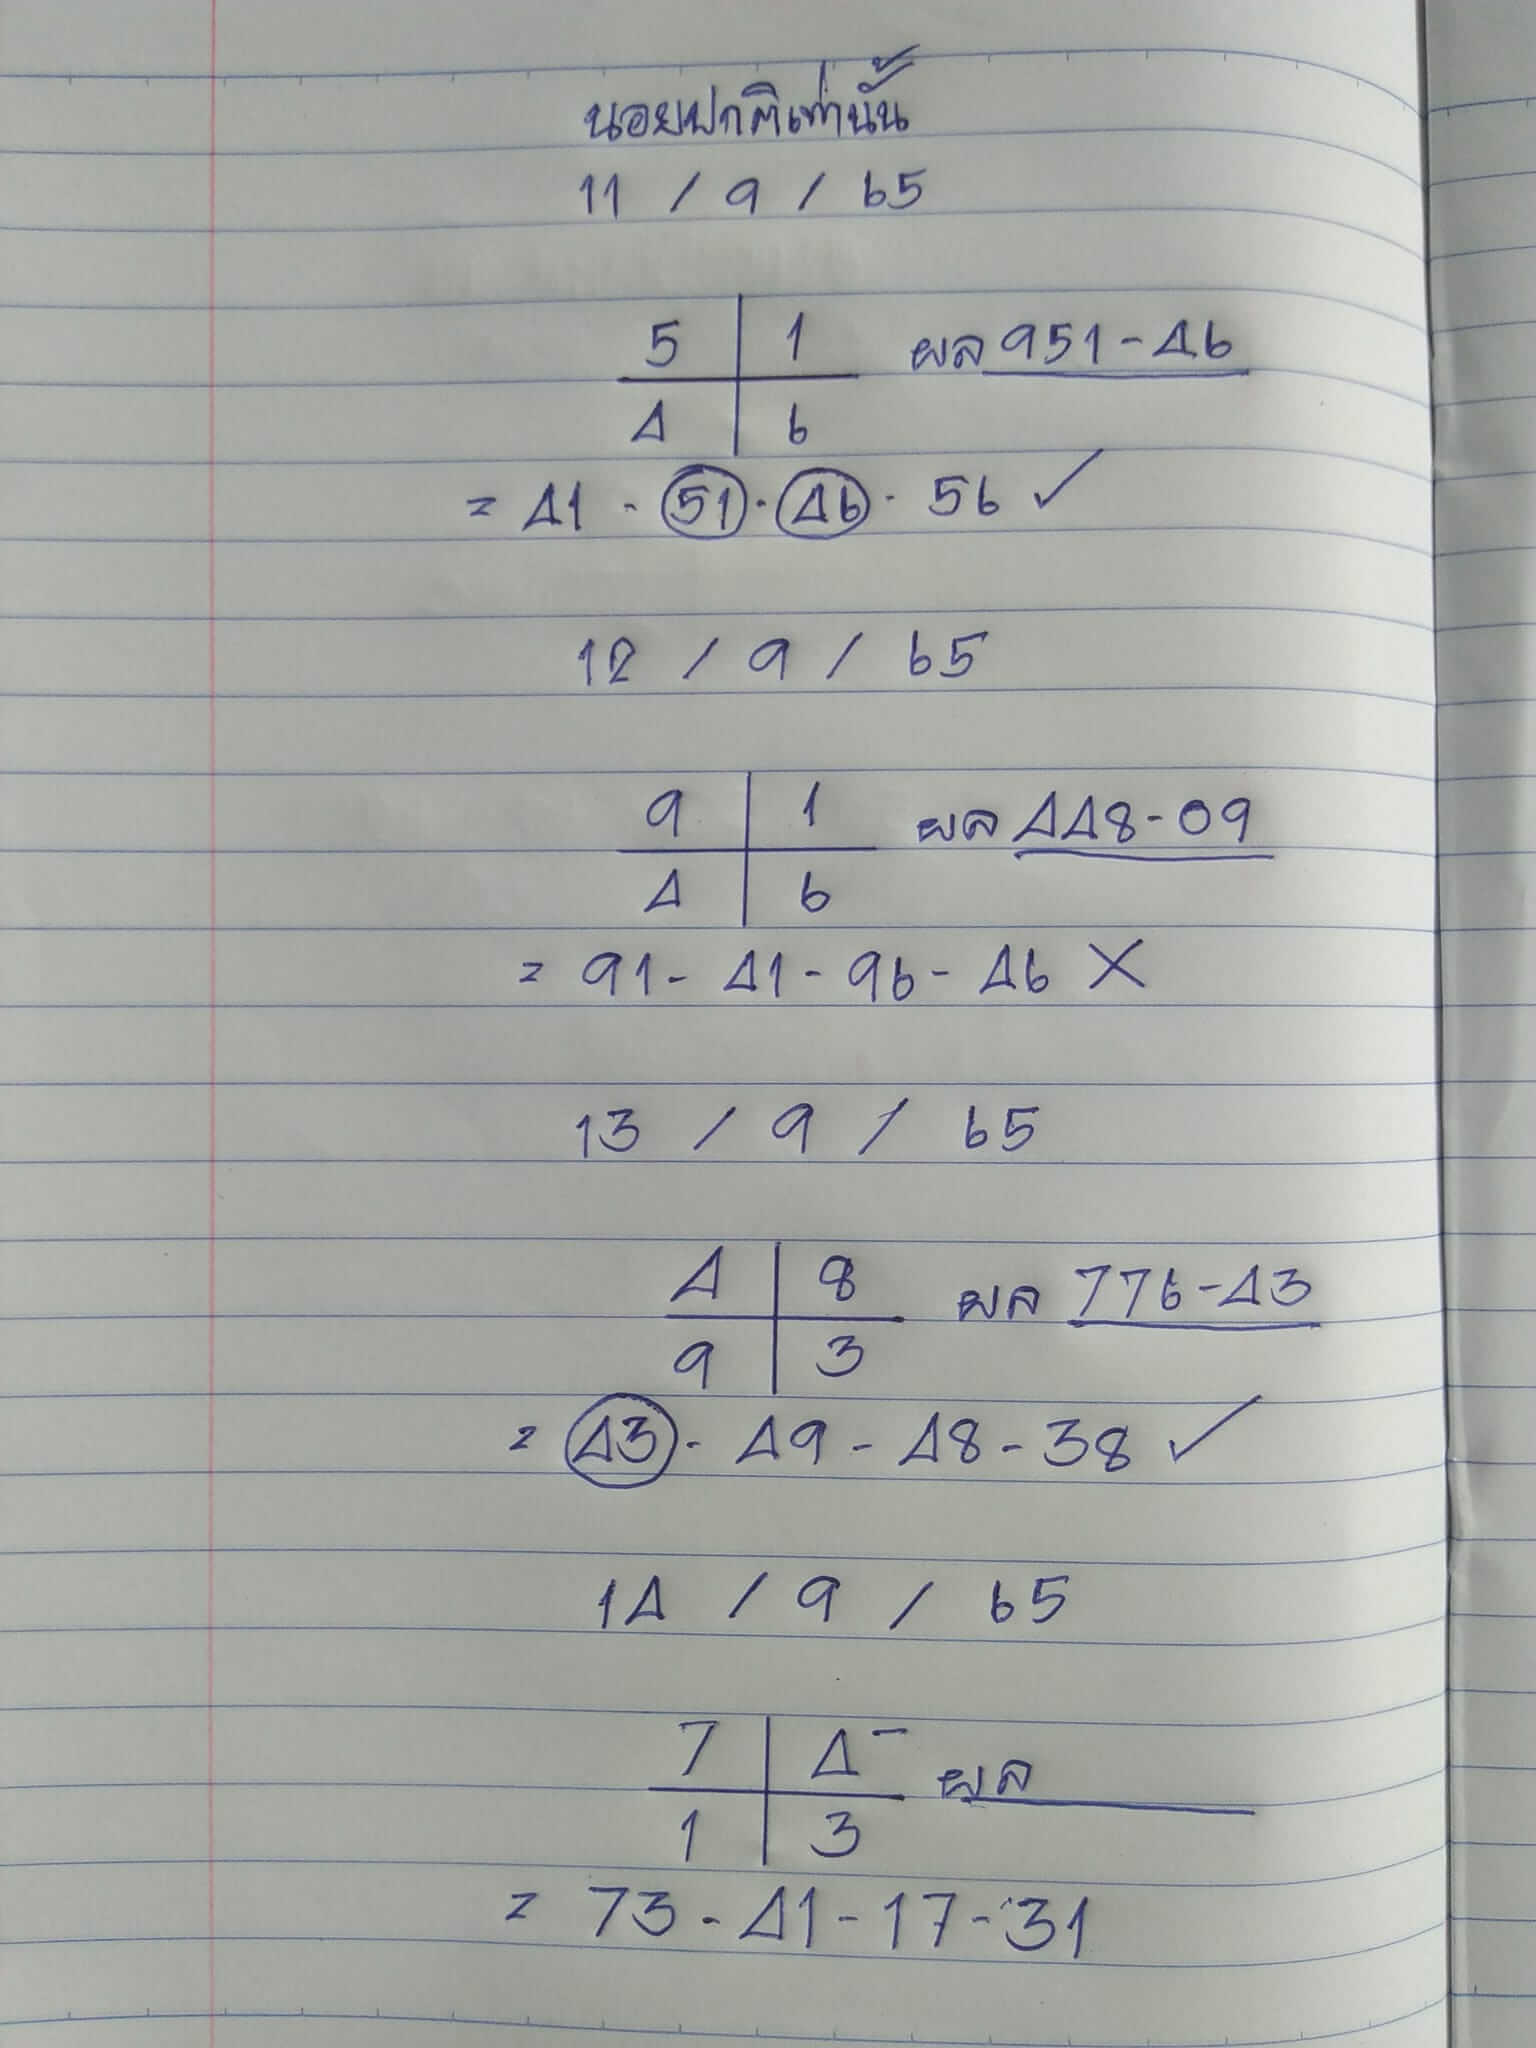 นอยปกติเท่านั้น
11 / 9 / 65
5 | 1 ผล 951-46
4 | 6
= 41 - 51 - 46 - 56 ✓
12 / 9 / 65
9 | 1 ผล 448-09
4 | 6
= 91 - 41 - 96 - 46 X
13 / 9 / 65
4 | 8 ผล 776-43
9 | 3
= 43 - 49 - 48 - 38 ✓
14 / 9 / 65
7 | 4- ผล
1 | 3
= 73 - 41 - 17 - 31